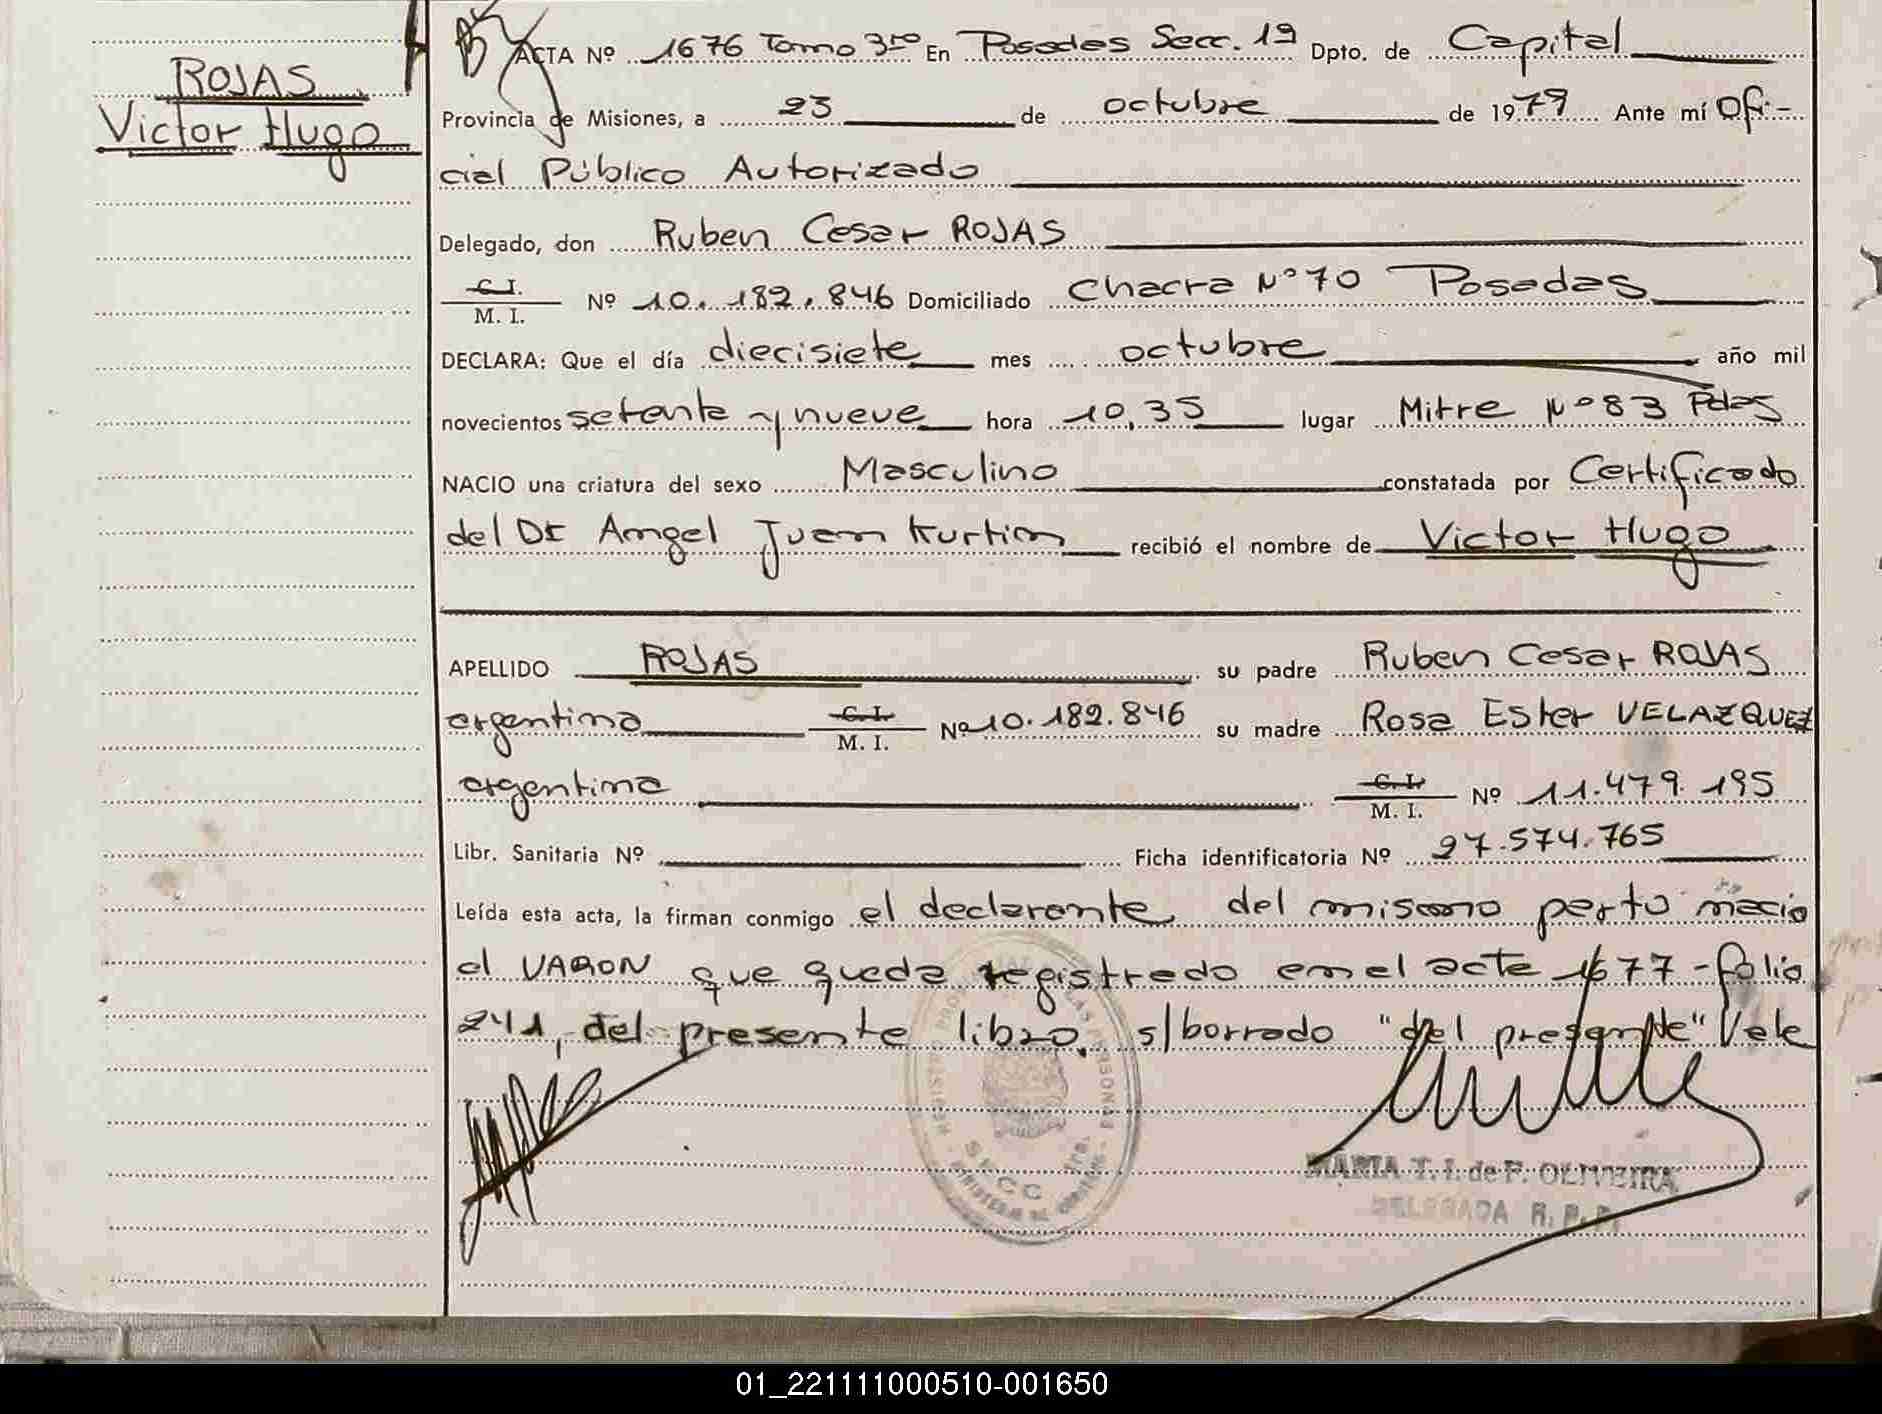 ROJAS
Victor Hugo
ACTA Nº 1676 Tomo 3ro En Posadas Secc. 1ª Dpto. de Capital
Provincia de Misiones, a 23 de octubre de 1979 Ante mí Ofi-
cial Público Autorizado
Delegado, don Ruben Cesar ROJAS
C.I.
M. I. Nº 10.182.846 Domiciliado Chacra Nº 70 Posadas
DECLARA: Que el día diecisiete mes octubre año mil
novecientos setenta y nueve hora 10,35 lugar Mitre Nº 83 Pdas
NACIO una criatura del sexo Masculino constatada por Certificado
del Dr Angel Juan Kurtin recibió el nombre de Victor Hugo
APELLIDO ROJAS su padre Ruben Cesar ROJAS
argentino C.I. M. I. Nº 10.182.846 su madre Rosa Ester VELAZQUEZ
argentina C.I. M. I. Nº 11.479.195
Libr. Sanitaria Nº Ficha identificatoria Nº 27.574.765
Leída esta acta, la firman conmigo el declarante, del mismo parto nacio
el VARON que queda registrado en el acta 1677 - folio
241, del presente libro. s/borrado "del presente" Vale
REGISTRO PROVINCIAL DE LAS PERSONAS
MINISTERIO DE GOBIERNO
SECC 1ra.
MARIA T. I. de F. OLIVEIRA
DELEGADA R. P. P.
01_221111000510-001650